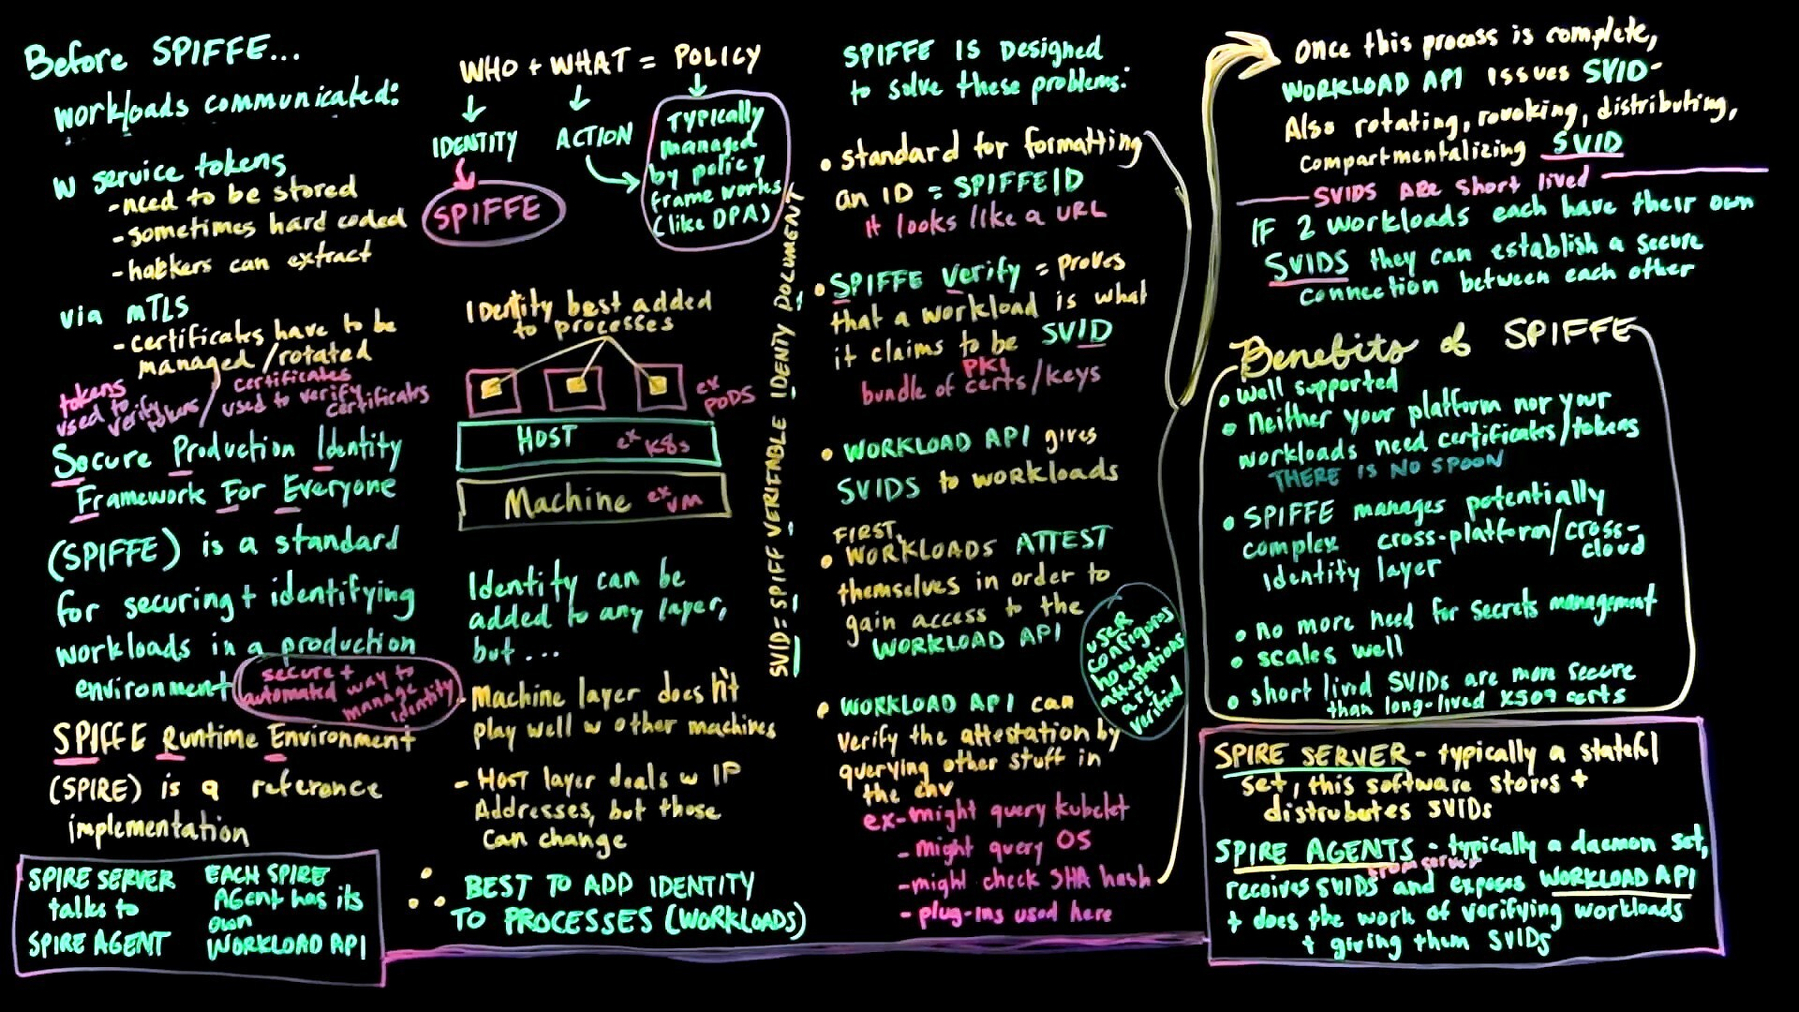 Before SPIFFE...
workloads communicated:
w service tokens
- need to be stored
- sometimes hard coded
- hakkers can extract
via mTLS
- certificates have to be
managed / rotated
tokens
used to
verify
tokens
/ certificates
used to verify
certificates
Secure Production Identity
Framework For Everyone
(SPIFFE) is a standard
for securing + identifying
workloads in a production
environment
secure +
automated way to
manage
identity
SPIFFE Runtime Environment
(SPIRE) is a reference
implementation
SPIRE SERVER
talks to
SPIRE AGENT
EACH SPIRE
Agent has its
own
WORKLOAD API
WHO + WHAT = POLICY
IDENTITY
ACTION
SPIFFE
Typically
managed
by policy
frameworks
(like DPA)
Identity best added
to processes
ex
PODS
HOST ex K8s
Machine ex VM
Identity can be
added to any layer,
but ...
- Machine layer does n't
play well w other machines
- Host layer deals w IP
Addresses, but those
can change
∴ BEST TO ADD IDENTITY
TO PROCESSES (WORKLOADS)
SVID = SPIFF VERITABLE IDENTY DOCUMENT
SPIFFE IS Designed
to solve these problems:
• standard for formatting
an ID = SPIFFEID
it looks like a URL
• SPIFFE Verify = proves
that a workload is what
it claims to be SVID
PKI
bundle of certs/keys
• WORKLOAD API gives
SVIDS to workloads
FIRST,
• WORKLOADS ATTEST
themselves in order to
gain access to the
WORKLOAD API
user
configures
how
attestations
are
verified
• WORKLOAD API can
Verify the attestation by
querying other stuff in
the env
ex - might query kubelet
- might query OS
- might check SHA hash
- plug-ins used here
Once this process is complete,
WORKLOAD API issues SVID -
Also rotating, revoking, distributing,
compartmentalizing SVID
SVIDS are short lived
IF 2 workloads each have their own
SVIDS they can establish a secure
connection between each other
Benefits of SPIFFE
• well supported
• Neither your platform nor your
workloads need certificates/tokens
THERE IS NO SPOON
• SPIFFE manages potentially
complex cross-platform/cross-
cloud
identity layer
• no more need for secrets management
• scales well
• short lived SVIDs are more secure
than long-lived X509 certs
SPIRE SERVER - typically a stateful
set, this software stores +
distrubutes SVIDs
SPIRE AGENTS - typically a daemon set,
from server
receives SVIDs and exposes WORKLOAD API
+ does the work of verifying workloads
+ giving them SVIDs